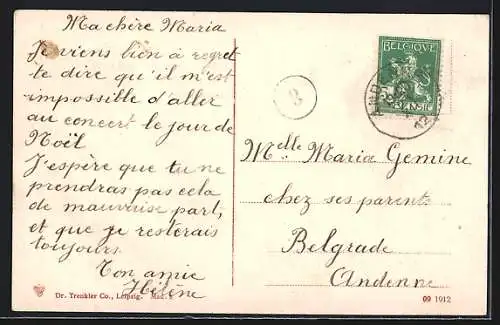 Ma chère Maria
Je viens bien à regret
te dire qu'il m'est
impossible d'aller
au concert le jour de
Noël
J'espère que tu ne
prendras pas cela
de mauvaise part,
et que je resterais
toujours
Ton amie
Hélène
BELGIQUE
3
Melle Maria Gemine
chez ses parents
Belgrade
Andenne
Dr. Trenkler Co., Leipzig.
09 1912